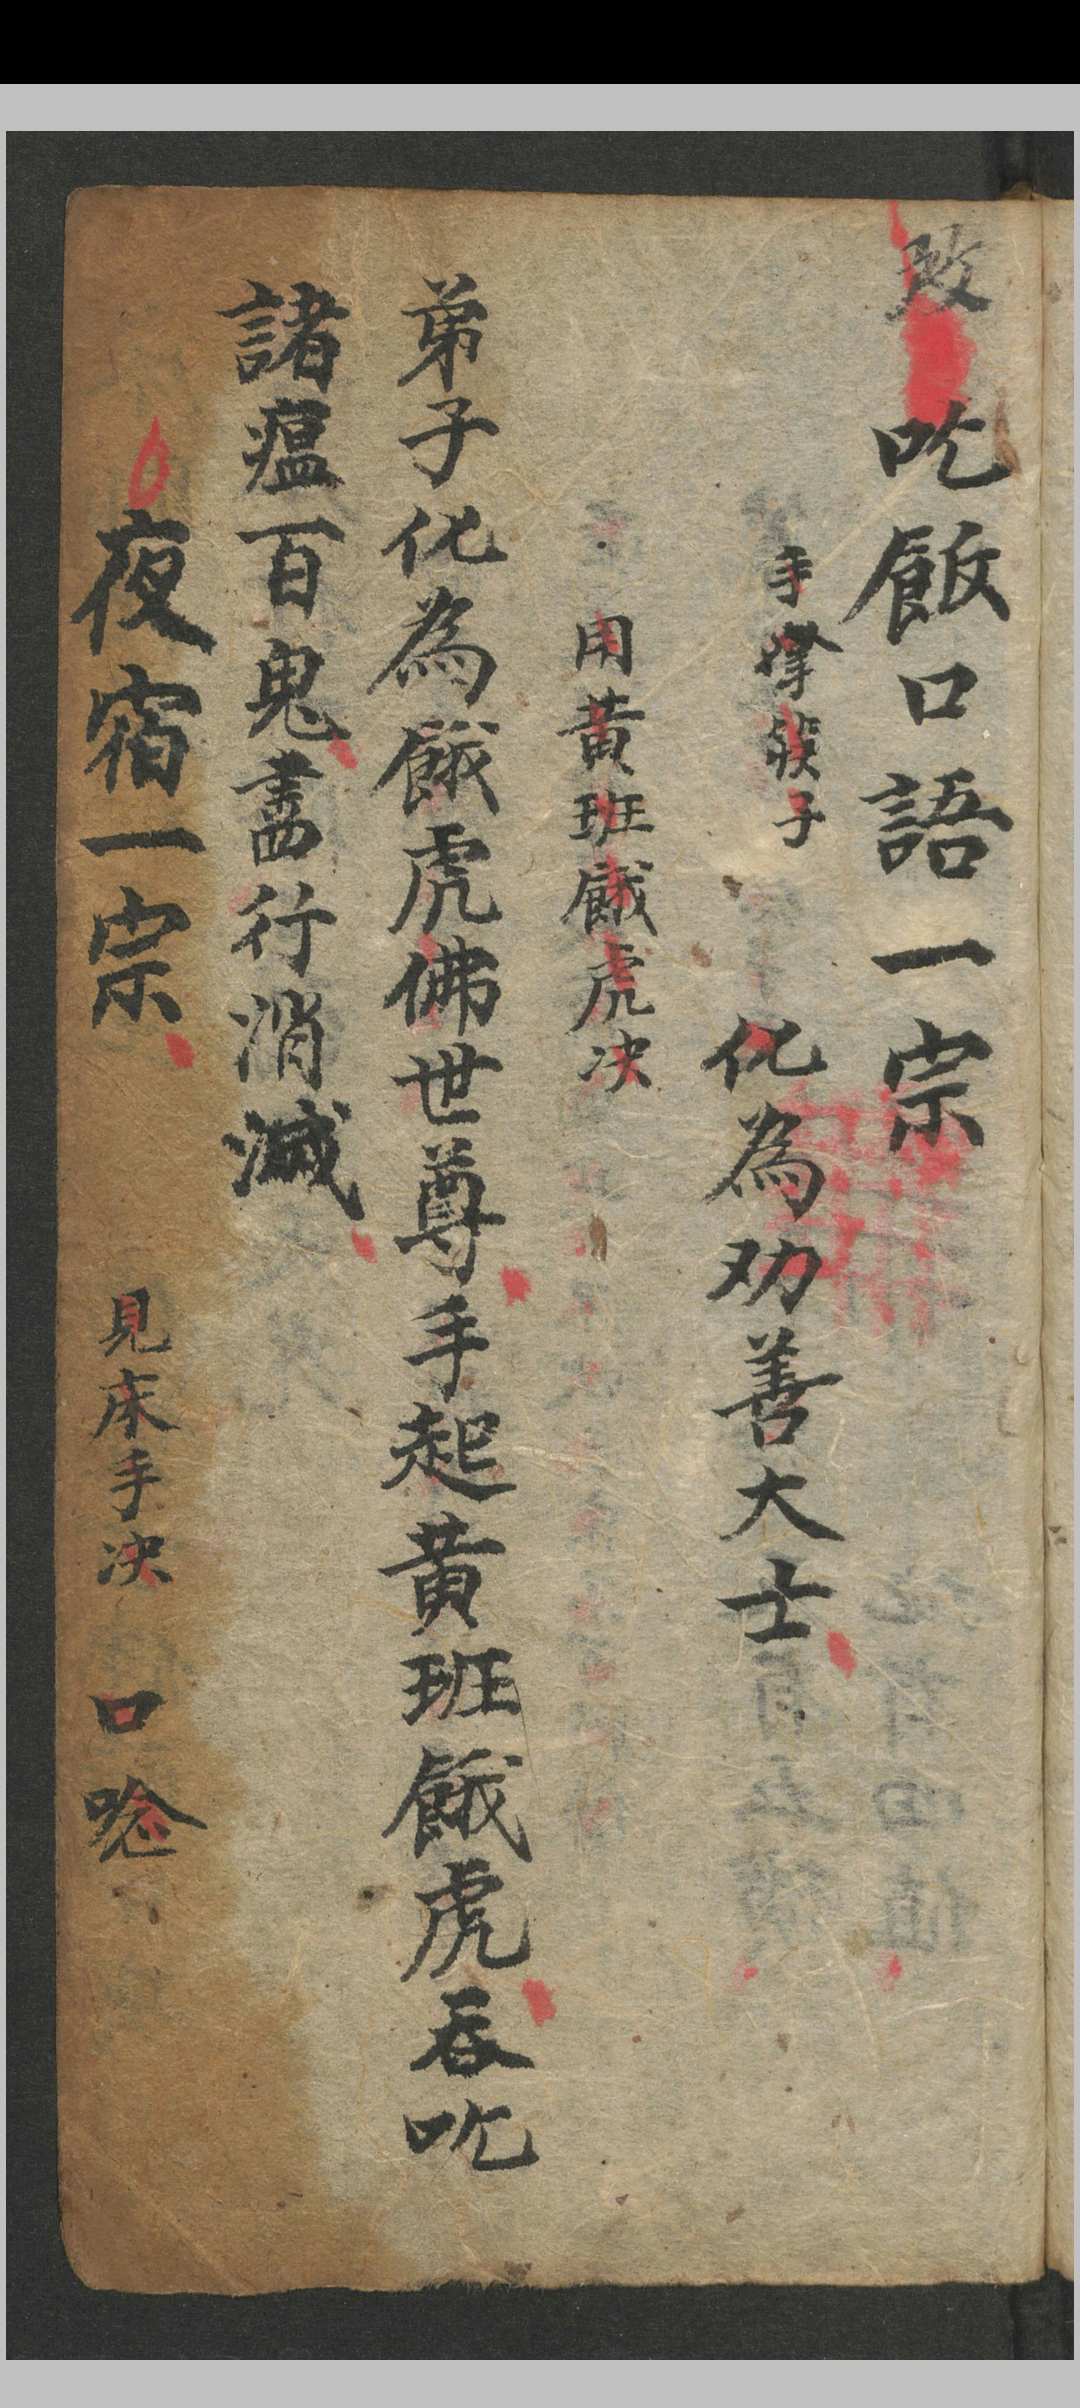 敗
吃飯口語一宗
手拿筷子
化為劝善大士
用黃班餓虎决
弟子化為餓虎佛世尊手起黃班餓虎吞吃
諸瘟百鬼盡行消滅
夜宿一宗
見床手决
口唸